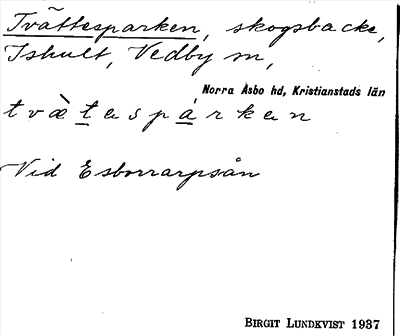 Tvättesparken, skogsbacke,
Ishult, Vedby sn,
Norra Åsbo hd, Kristianstads län
tvæ̀tespárken
Vid Esborrarpsån
BIRGIT LUNDKVIST 1937